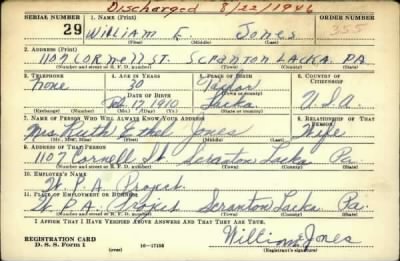 Discharged 8/22/1946
SERIAL NUMBER 1. NAME (Print) ORDER NUMBER
29 William E. Jones 355
(First) (Middle) (Last)
2. ADDRESS (Print)
1107 Cornell St. Scranton Lacka. Pa.
(Number and street or R. F. D. number) (Town) (County) (State)
3. TELEPHONE 4. AGE IN YEARS 5. PLACE OF BIRTH 6. COUNTRY OF CITIZENSHIP
None 30 Taylor
DATE OF BIRTH (Town or county)
Feb. 17 1910 Lacka. U.S.A.
(Mo.) (Day) (Yr.) (State or country)
7. NAME OF PERSON WHO WILL ALWAYS KNOW YOUR ADDRESS 8. RELATIONSHIP OF THAT PERSON
Mrs. Ruth Ethel Jones Wife
(Mr., Mrs., Miss) (First) (Middle) (Last)
9. ADDRESS OF THAT PERSON
1107 Cornell St Scranton Lacka Pa.
(Number and street or R. F. D. number) (Town) (County) (State)
10. EMPLOYER'S NAME
W. P. A. Project.
11. PLACE OF EMPLOYMENT OR BUSINESS
W. P. A. Project Scranton Lacka Pa.
(Number and street or R. F. D. number) (Town) (County) (State)
I AFFIRM THAT I HAVE VERIFIED ABOVE ANSWERS AND THAT THEY ARE TRUE.
William E Jones
REGISTRATION CARD
D. S. S. Form 1 (over) 16-17105 (Registrant's signature)